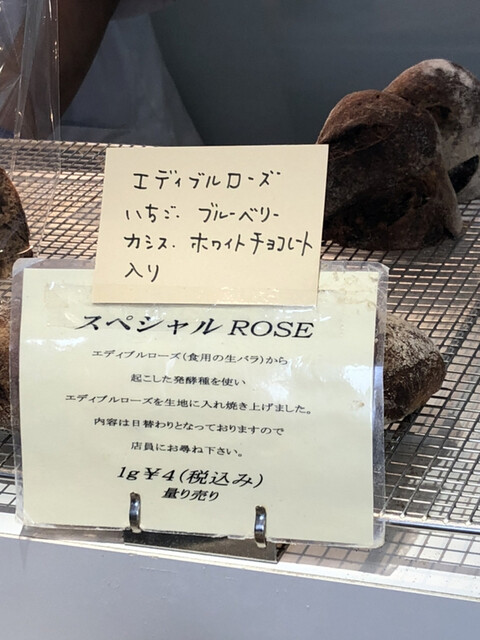 エディブルローズ
いちご・ブルーベリー
カシス・ホワイトチョコレート
入り
スペシャル ROSE
エディブルローズ(食用の生バラ)から
起こした発酵種を使い
エディブルローズを生地に入れ焼き上げました。
内容は日替わりとなっておりますので
店員にお尋ね下さい。
1g ¥4(税込み)
量り売り